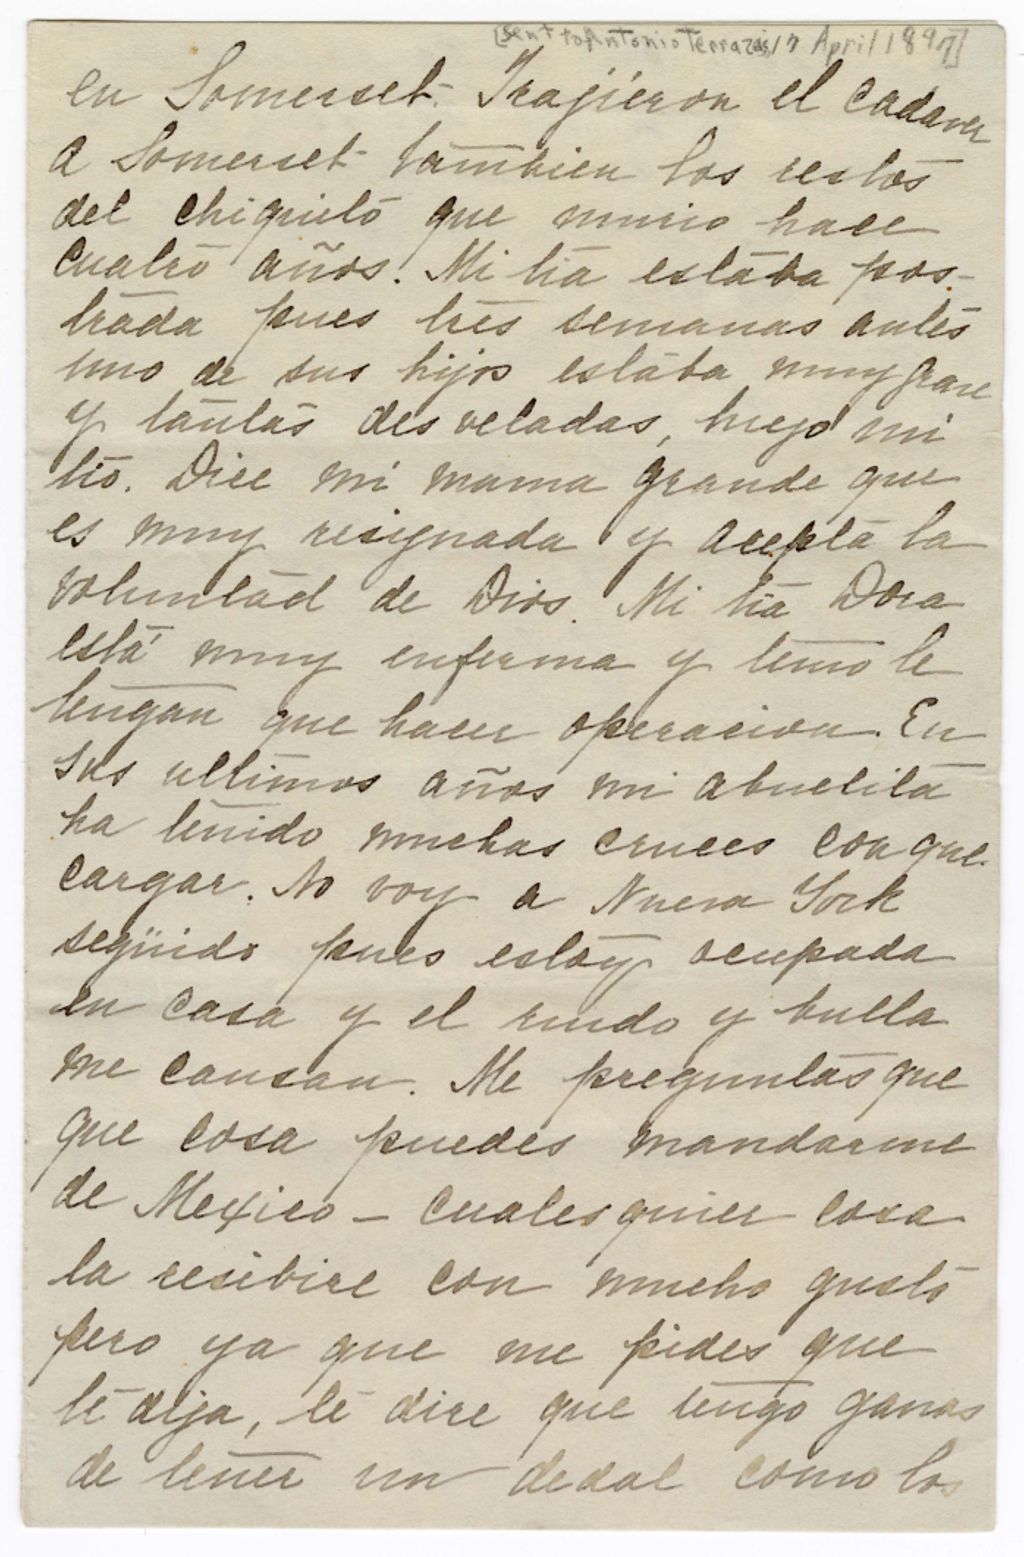 [sent to Antonio Terrazas, 17 April 1897]
en Somerset. Trajieron el cadaver
a Somerset tambien los restos
del chiquito que murio hace
cuatro años. Mi tia estaba pos-
trada pues tres semanas antes
uno de sus hijos estaba muy grave
y tantas desveladas, luego mi
tio. Dice mi mama grande que
es muy resignada y acepta la
voluntad de Dios. Mi tia Dora
está muy enferma y temo le
tengan que hacer operacion. En
sus ultimos años mi abuelita
ha tenido muchas cruces con que
cargar. No voy a Nueva York
següido pues estoy ocupada
en casa y el ruido y bulla
me cansan. Me preguntas que
que cosa puedes mandarme
de Mexico – cualesquier cosa
la resibire con mucho gusto
pero ya que me pides que
te dija, te dire que tengo ganas
de tener un dedal como los